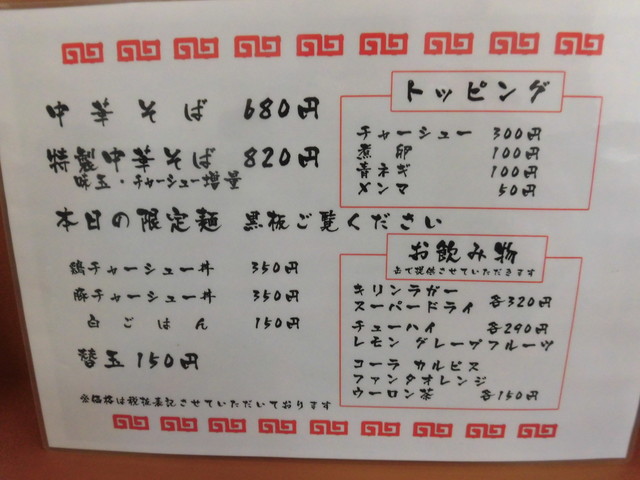 中華そば 680円
特製中華そば 820円
味玉・チャーシュー増量
本日の限定麺 黒板ご覧ください
鶏チャーシュー丼 350円
豚チャーシュー丼 350円
白ごはん 150円
替玉150円
全価格は税込表記させていただいております
トッピング
チャーシュー 300円
煮卵 100円
青ネギ 100円
メンマ 50円
お飲み物
缶で提供させていただきます
キリンラガー
スーパードライ 各320円
チューハイ 各290円
レモン グレープフルーツ
コーラ カルピス
ファンタオレンジ
ウーロン茶 各150円